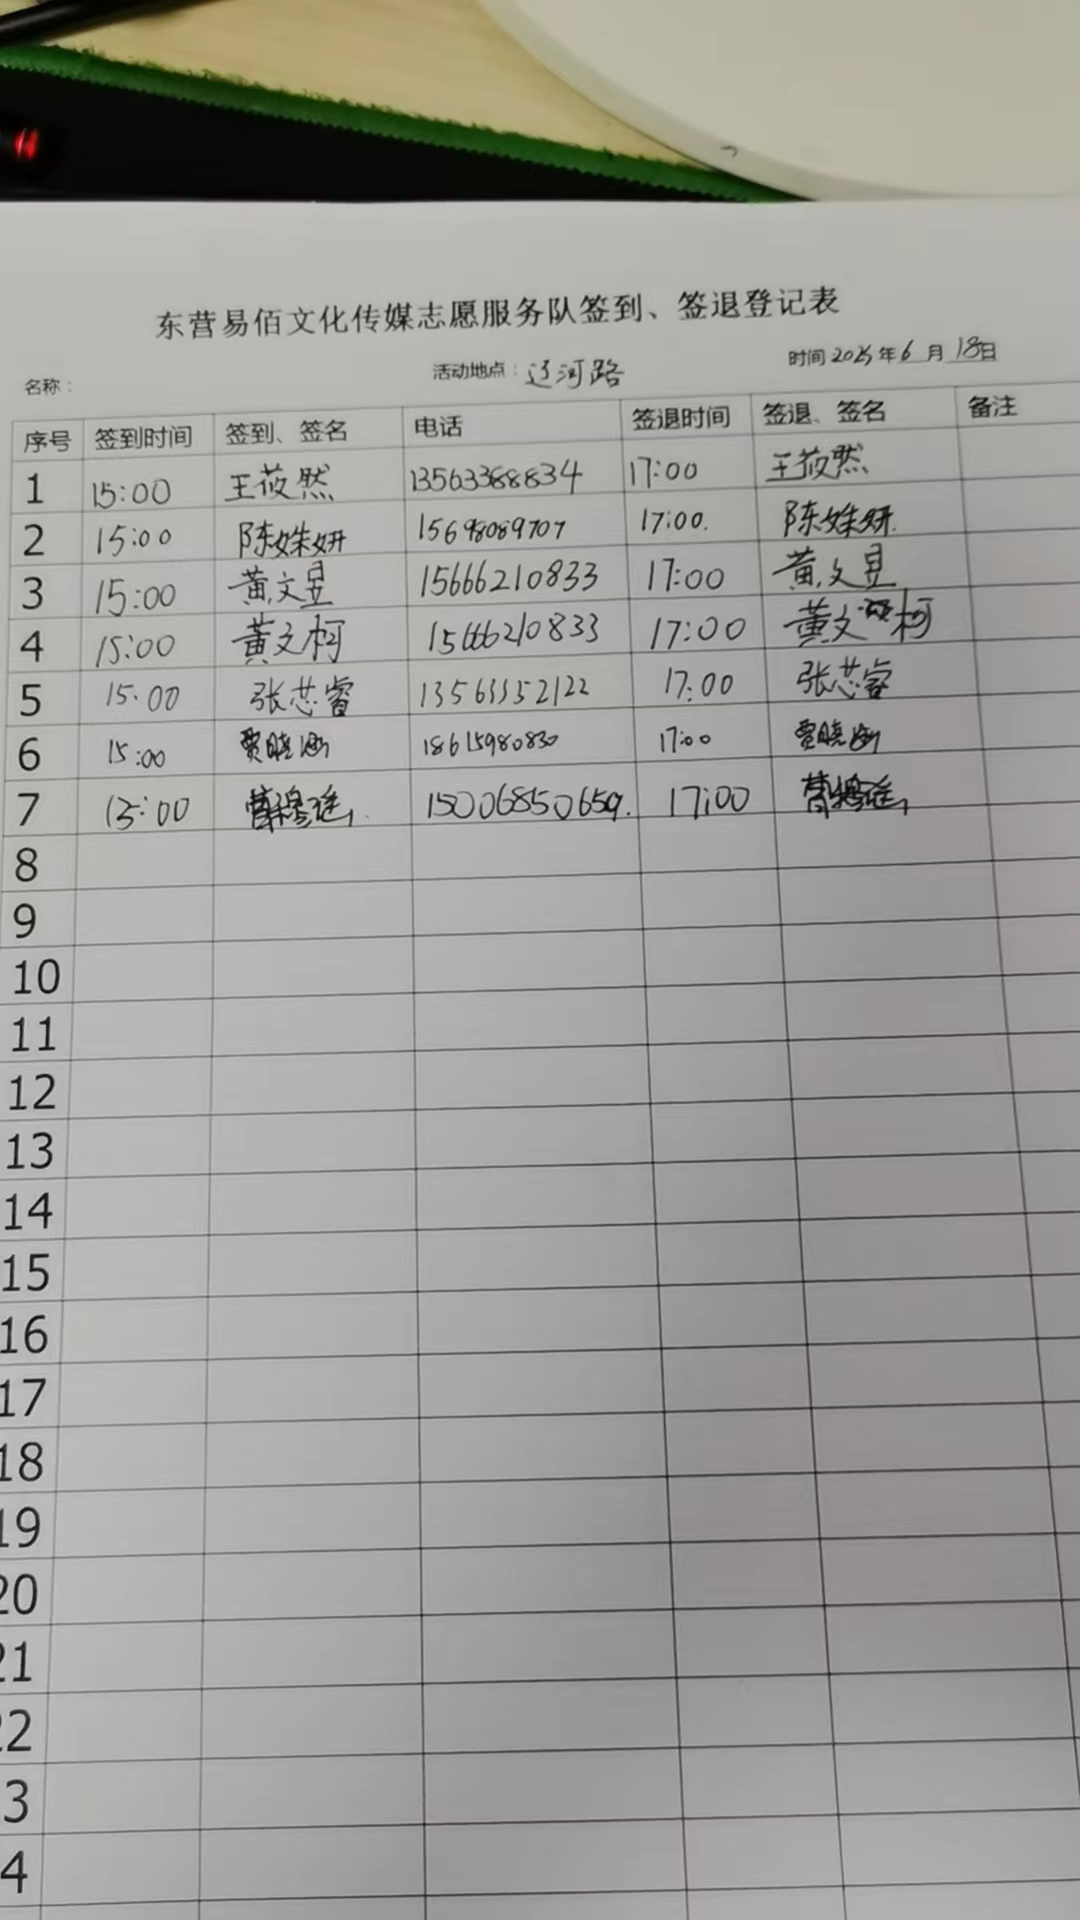 东营易佰文化传媒志愿服务队签到、签退登记表
名称： 活动地点：辽河路 时间 2025年6月18日
序号 签到时间 签到、签名 电话 签退时间 签退、签名 备注
1 15:00 王莜然 13563388834 17:00 王莜然
2 15:00 陈姝妍 15698089707 17:00. 陈姝妍.
3 15:00 黄文昱 15666210833 17:00 黄文昱
4 15:00 黄文柯 15666210833 17:00 黄文柯
5 15:00 张芯睿 13563352122 17:00 张芯睿
6 15:00 贾晓涵 18615980830 17:00 贾晓涵
7 15:00 15006850659. 17:00
8
9
10
11
12
13
14
15
16
17
18
19
20
21
22
3
4